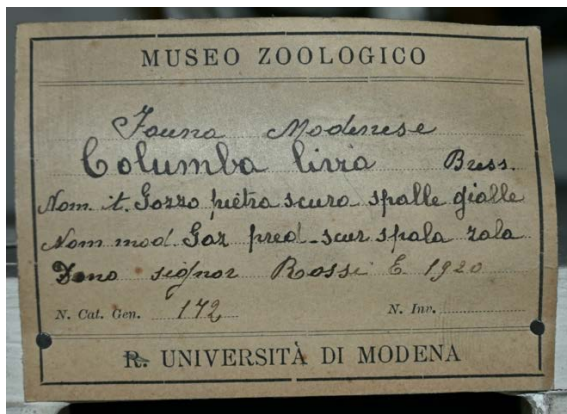 MUSEO ZOOLOGICO
Fauna Modenese
Columba livia Briss.
Nom. it. Gozzo pietra scura spalle gialle
Nom mod. Goz pred-scur spala zala
Dono signor Rossi E 1920
N. Cat. Gen. 172 N. Inv.
R. UNIVERSITÀ DI MODENA